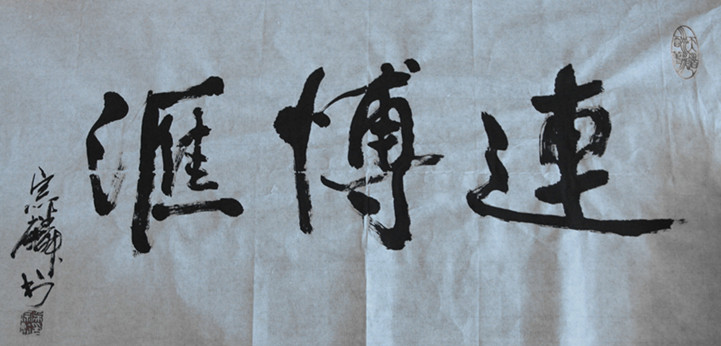 連博滙
宗麟书